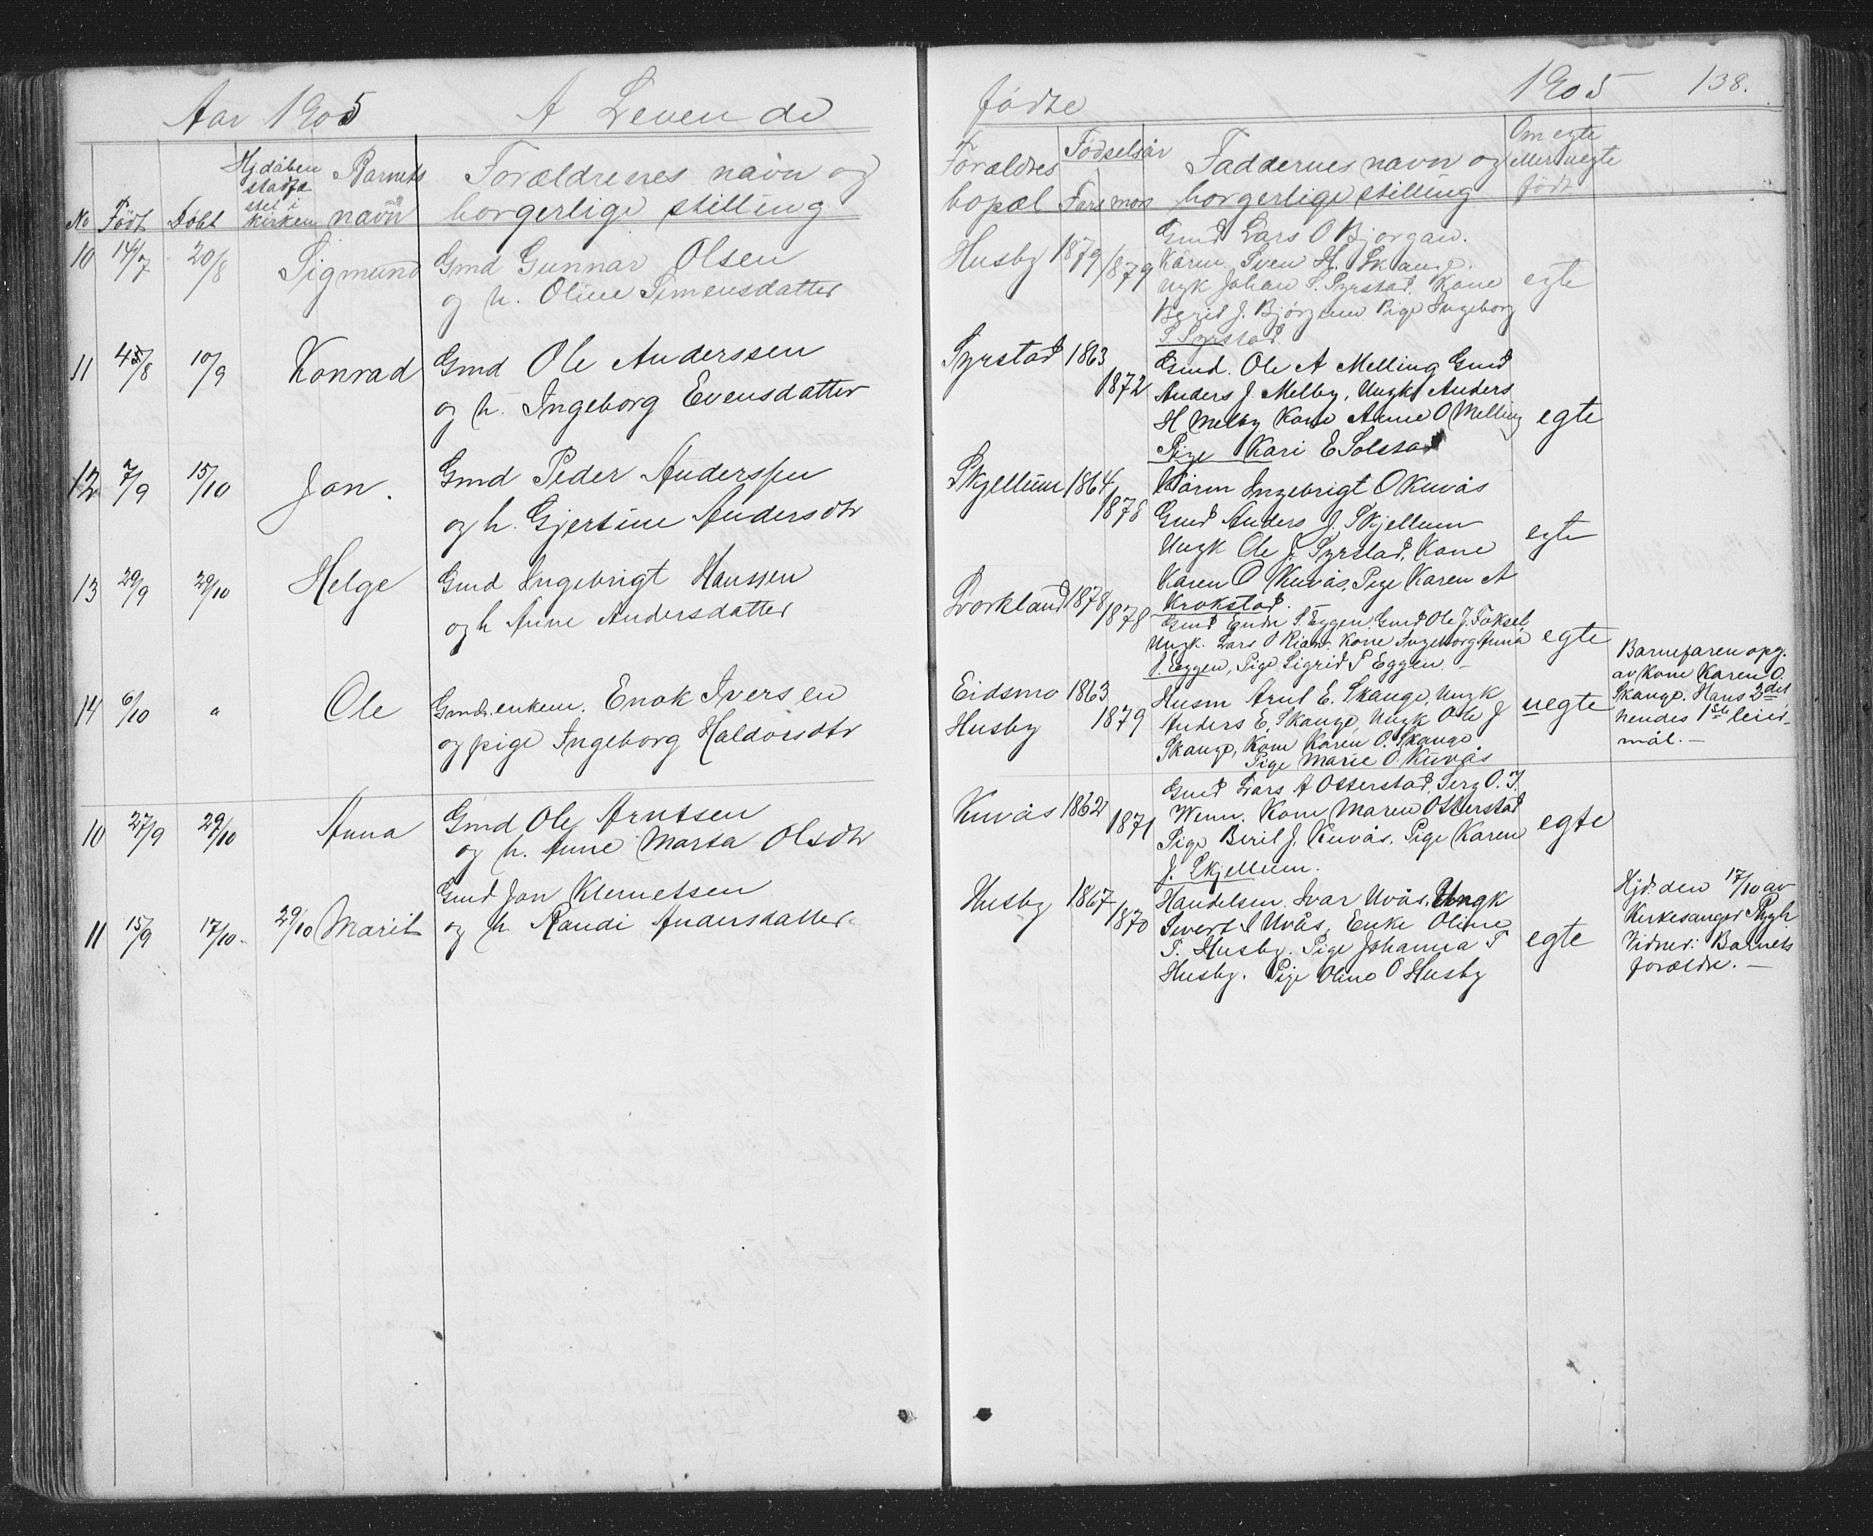 Aar 1905 A Levende
No Født Døbt Hjdøben stadfæstet i Kirken Barnets navn Forældrenes navn og borgerlige stilling
10 14/7 20/8 Sigmund Gmd Gunnar Olsen
og h. Oline Simensdatter
11 /8 10/9 Konrad Gmd Ole Anderssen
og h. Ingeborg Evensdatter
12 7/9 15/10 Jon. Gmd Peder Anderssen
og h. Gjertine Andersdtr
13 29/9 29/10 Helge Gmd Ingebrigt Hanssen
og h Anne Andersdatter
14 6/10 " Ole Gmd. enkem. Enok Iversen
og pige Ingeborg Haldorsdtr
10 27/9 29/10 Anna Gmd Ole Arntsen
og h. Anne Marta Olsdtr
11 15/9 17/10 29/10 Marit Gmd Jon Klemetsen
og h Randi Andersdatter
fødte 1905 138.
Forældres bopæl Fødselsår Fars mors Faddernes navn og borgerlige stilling Om egte eller uegte født
Husby 1879 1879 Gmd Lars O Bjørgan.
Kårm. Sven H. Skauge.
Ungk Johan S. Syrstad. Kone
Berit J. Bjørgan Pige Ingeborg
S Syrstad
egte
Syrstad 1863 1872 Gmd. Ole A Melling Gmd
Anders J. Melby, Ungk. Anders
H Melby Kone Anne O Melling
Pige Kari E Solstad
egte
Skjellum 1864 1878 Kårm Ingebrigt O Kuvås
Gmd Anders J. Skjellum
Ungk Ole J. Syrstad, Kone
Karen O Kuvås, Pige Karen A
Krokstad.
egte
Svorkland 1878 1878 Gmd S. Eggen, Gmd Ole J.
Ungk. Lars O Rian. Kone Ingeborg Anna
J. Eggen, Pige Sigrid S Eggen. —
egte
Eidsmo 1863
Husby 1879 Husm Arnt E. Skauge, Ungk
Anders E. Skauge, Ungk Ole J
Skauge, Kone Karen O. Skauge
Pige Marie O. Kuvås
uegte
Barnefaren opg.
av Kone Karen O.
Skauge. Hans 2det
hendes 1ste leier-
mål. —
Kuvås 1862 1871 Gmd Lars A Otterstad, Serg O. I.
Wenn. Kone Maren Otterstad
Pige Berit J. Kuvås. Pige Karen
J. Skjellum.
egte
Husby 1867 1870 Handelsm. Ivar Uvås, Ungk
Sivert I Uvås, Enke Oline
T. Husby. Pige Johanna T
Husby. Pige Oline O Husby
egte
Hjd. den 17/10 av
Kirkesanger Rygh
Vidner: Barnets
forældre. —